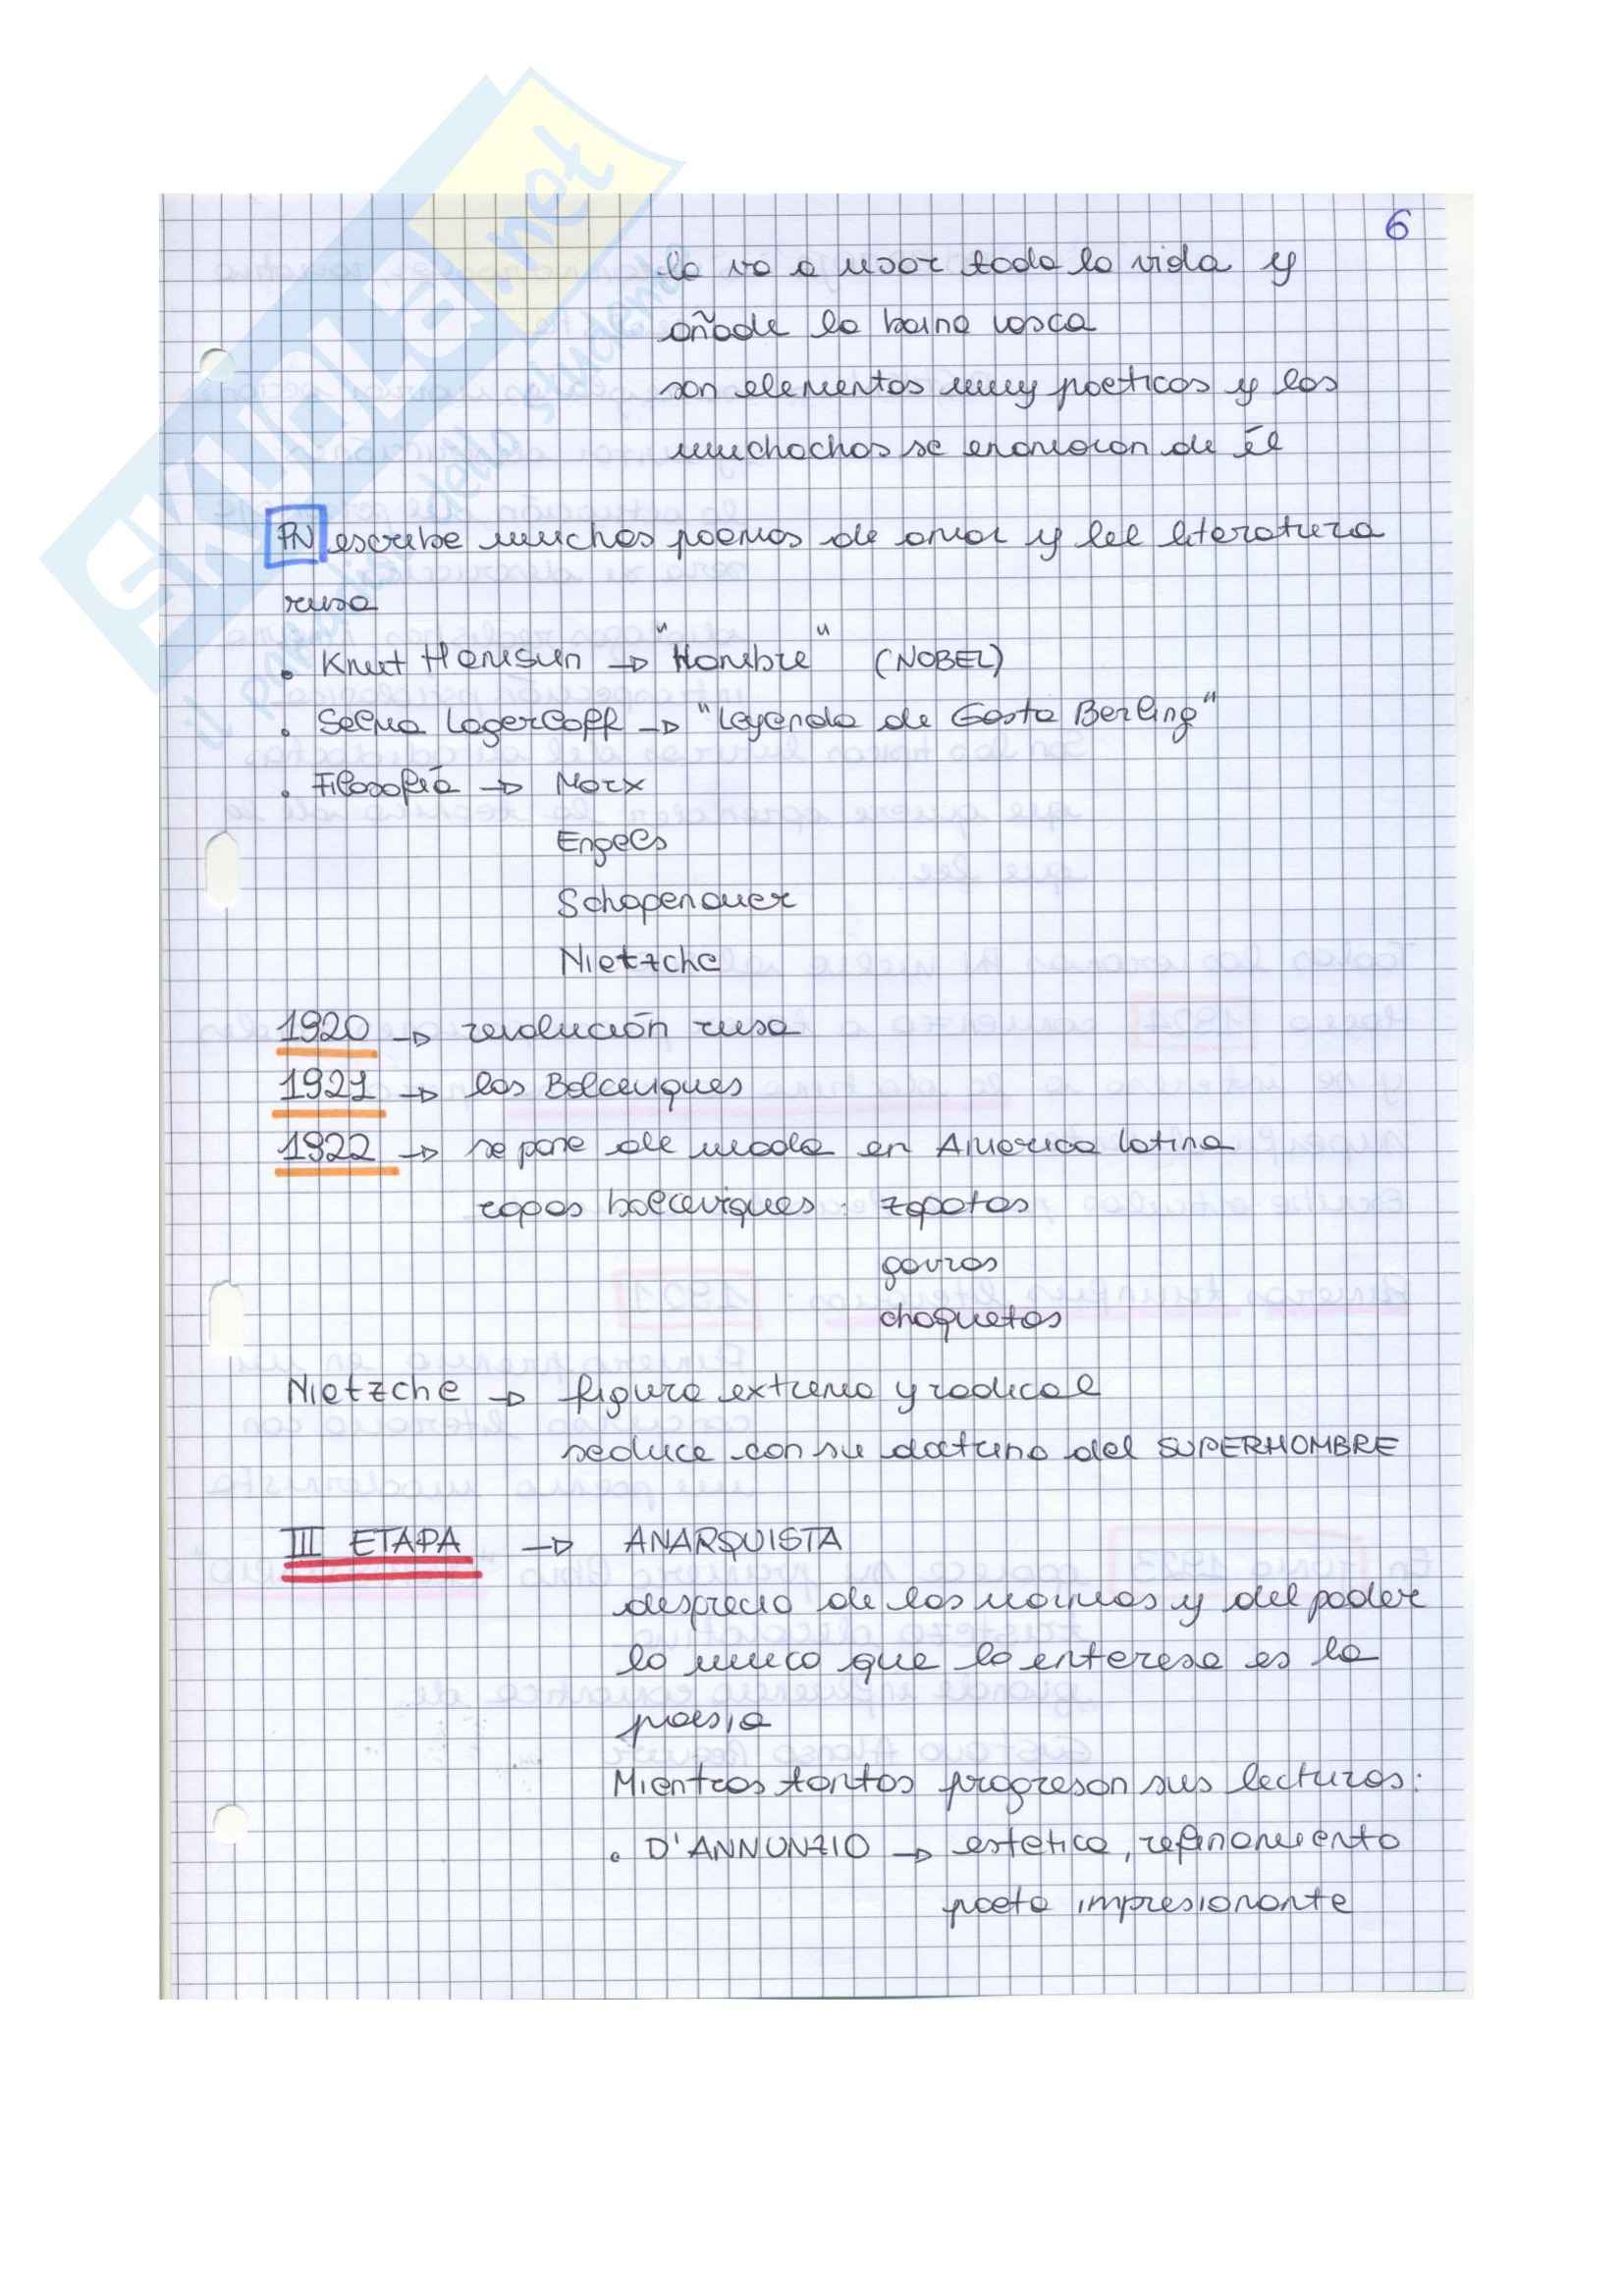 6
la va a usar toda la vida y
añade la boina vasca
son elementos muy poeticos y los
muchachos se enamoran de él
PN escribe muchos poemas de amor y lee literatura
rusa
. Knut Hamsun → "Hambre" (NOBEL)
. Selma Lagerloff → "Leyenda de Gosta Berling"
. Filosofía → Marx
Engels
Schopenauer
Nietzche
1920 → revolución rusa
1921 → los Bolceviques
1922 → se pone de moda en America latina
ropas bolceviques: zapatos
gorros
chaquetas
Nietzche → figura extrema y radical
seduce con su doctrina del SUPERHOMBRE
III ETAPA → ANARQUISTA
desprecio de las normas y del poder
lo unico que lo enteresa es la
poesia
Mientras tantos progresan sus lecturas:
. D'ANNUNZIO → estetica, refinamiento
poeta impresionante
SKUOLA.net
il paradiso dello studente